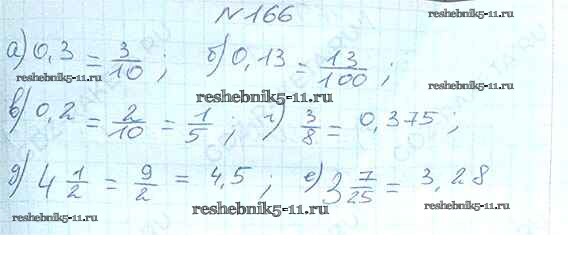 №166
а) 0,3 = 3/10; б) 0,13 = 13/100;
reshebnik5-11.ru
reshebnik5-11.ru
reshebnik5-11.ru
reshebnik5-11.ru
в) 0,2 = 2/10 = 1/5; г) 3/8 = 0,375;
reshebnik5-11.ru
д) 4 1/2 = 9/2 = 4,5; е) 3 7/25 = 3,28
reshebnik5-11.ru
reshebnik5-11.ru
reshebnik5-11.ru